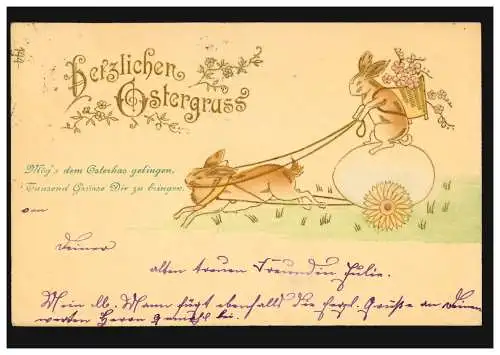 Herzlichen
Ostergruss
Mög's dem Osterhas gelingen,
Tausend Grüsse Dir zu bringen,
von
Deiner
alten treuen Freundin Julie.
Mein lb. Mann fügt ebenfalls die herzl. Grüße an Deinen
werten Herrn Gemahl bei.